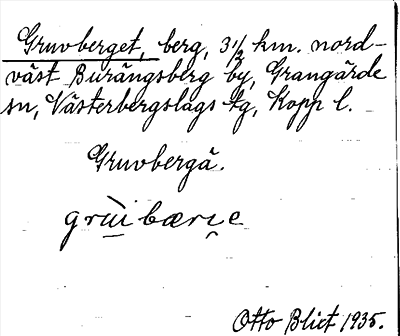 Gruvberget, berg, 3 1/2 km. nord-
väst Burängsberg by, Grangärde
sn, Västerbergslags tg, Kopp l.
Gruvbergä.
Otto Blixt 1935.